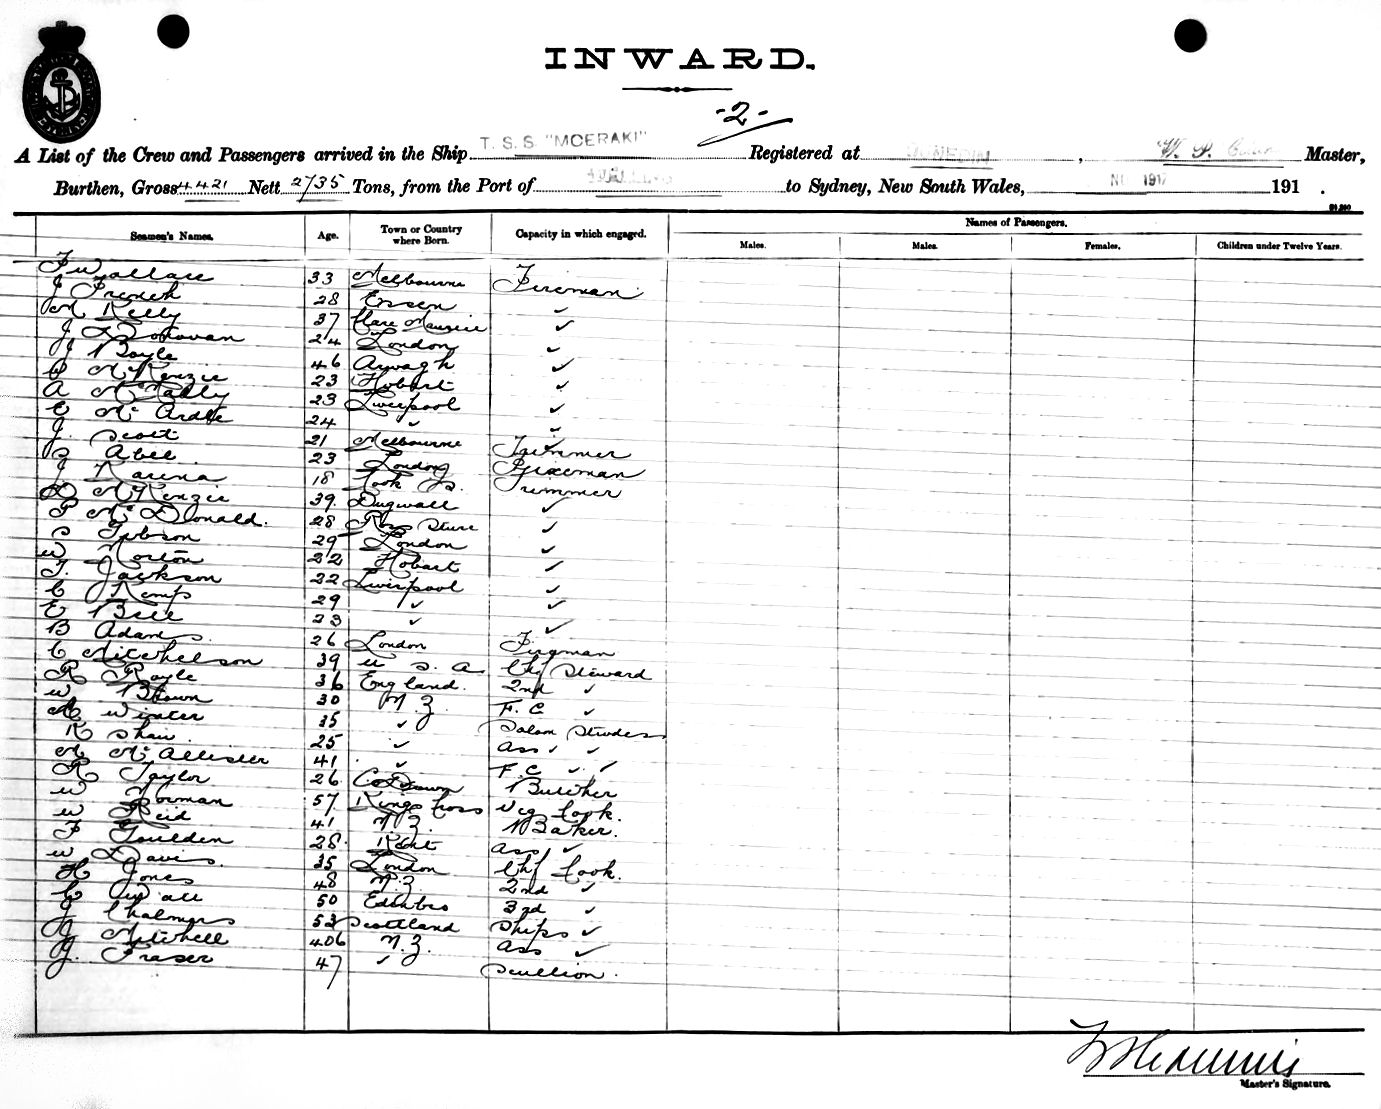 INWARD.
-2-
A List of the Crew and Passengers arrived in the Ship T. S. S. "MOERAKI" Registered at DUNEDIN, W. P. Master,
Burthen, Gross 4421 Nett 2735 Tons, from the Port of to Sydney, New South Wales, 1917 191 .
Seamen's Names. Age. Town or Country where Born. Capacity in which engaged. Names of Passengers.
Males. Males. Females. Children under Twelve Years.
F Wallace 33 Melbourne Fireman
J French 28 Essen ✓
M Kelly 37 ✓
J Donovan 24 London ✓
J Boyle 46 Armagh ✓
C McKenzie 23 Hobart ✓
A McNally 23 Liverpool ✓
E McArdle 24 ✓ ✓
J. Scott 21 Melbourne Trimmer
S Abel 23 London Fireman
J Karena 18 Cook Is. Trimmer
D McKenzie 39 Dingwall ✓
P McDonald. 28 Ross Shire ✓
S Jobson 29 London ✓
W Norton 22 Hobart ✓
T. Jackson 22 Liverpool ✓
C Kemp 29 ✓ ✓
E Bell 23 ✓ ✓
B Adams. 26 London Fireman
C Mitchelson 39 U S. A Chf Steward
R Royle 36 England. 2nd ✓
W Brown 30 N. Z F. C ✓
A Winter 35 ✓ Saloon Stwdess
K Shaw 25 ✓ Ass ✓ ✓
M McAllister 41 ✓ F. C ✓ ✓
R Taylor 26 Co Down Butcher
W Norman 57 Kings Cross Veg Cook.
W Reid 41 N. Z. Baker.
F Goulden 28 Kent Ass ✓
W Davies. 35 London Chf Cook.
H Jones 48 N. Z 2nd ✓
C Wall 50 3rd ✓
J Chalmers 52 Scotland Ships ✓
J Mitchell 46 N. Z. Ass ✓
J. Fraser 47 ✓ Scullion.
Master's Signature.